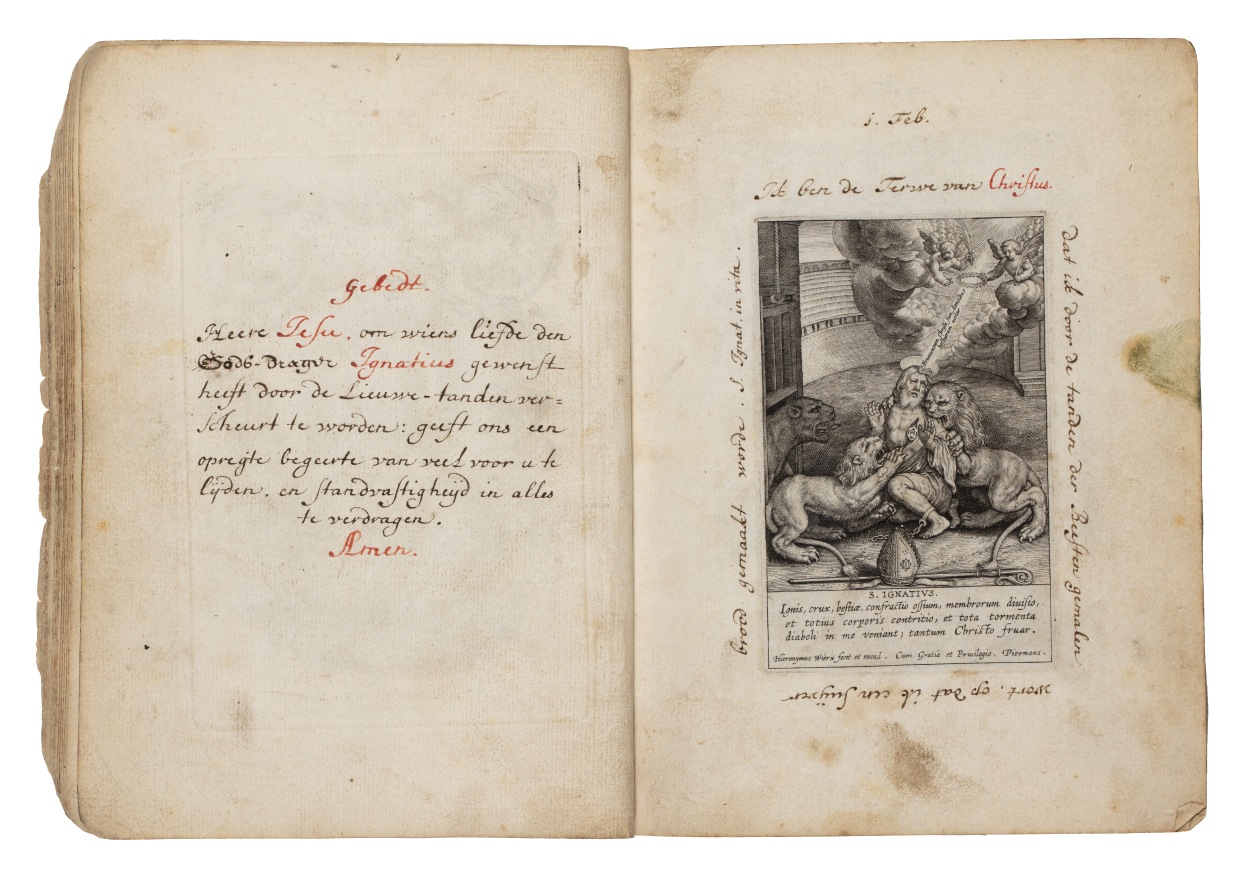 Gebedt.
Heere Jesu, om wiens liefde den
Gods-drager Ignatius gewenst
heeft door de Lieuwe-tanden ver=
scheurt te worden: geeft ons een
opregte begeerte van veel voor u te
lijden, en standvastigheyd in alles
te verdragen.
Amen.
1. Feb.
Ik ben de Terwe van Christus.
dat ik door de tanden der Beesten gemalen
wort, op dat ik een suijver
brood gemaakt worde. S. Ignat. in vita.
S. IGNATIVS.
Ignis, crux, bestiæ, confractio ossium, membrorum diuisio,
et totius corporis contritio, et tota tormenta
diaboli in me veniant; tantum Christo fruar.
Hieronymus Wierx fecit et excud. Cum Gratia et Privilegio. Piermans.